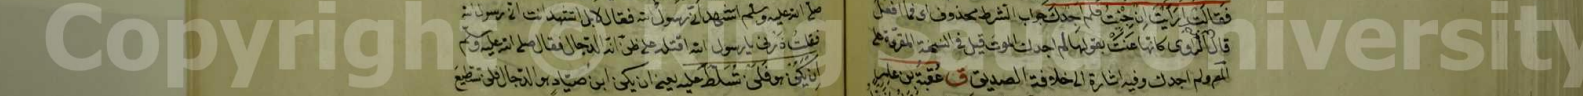 فقالت ارايت ان جئت فلم اجدك جواب الشرط محذوف اى فما افعل
قال الراوى كانها عنت بقولها لم اجدك الموت قيل فى النسخة المقروة على
المص ولم اجدك وفيه اشارة الى خلافة الصديق ق عقبة بن عامر
صلى الله عليه وسلم اتشهد انى رسول الله فقال لا بل اتشهد انت انى رسول الله
فقلت ذرنى يا رسول الله اقتله على ظن انه الدجال فقال صلى الله عليه وسلم
ان يكن هو فلن تسلط عليه يعنى ان يكن ابن صياد هو الدجال فلن تستطيع
Copyright © King Saud University